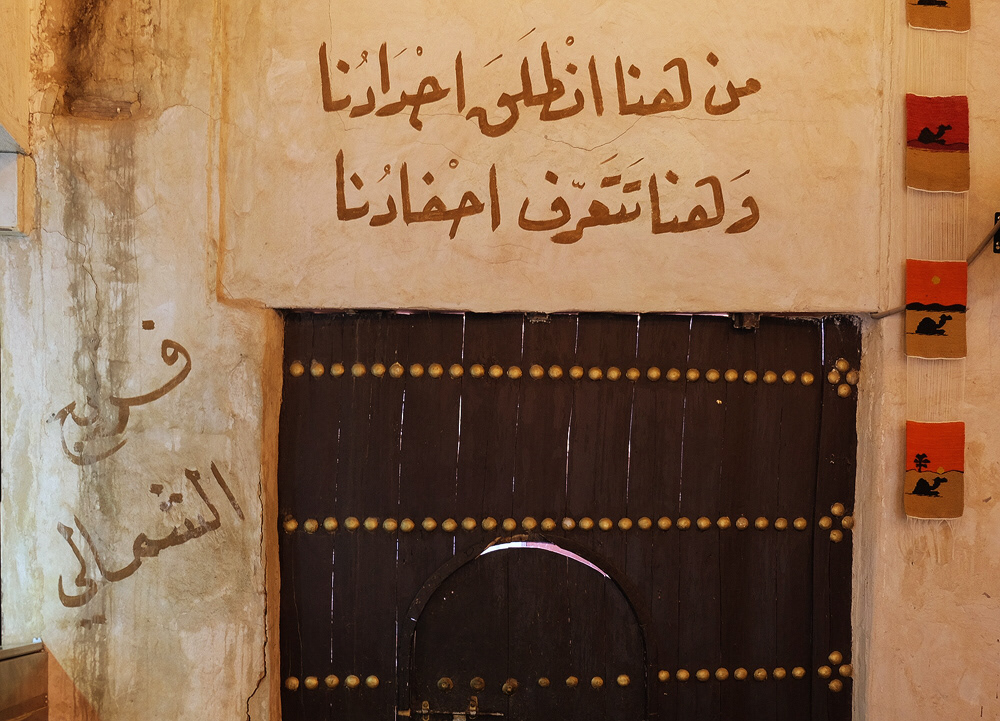 من هنا انْطلَقَ اجْدَادُنا
وَهنا تَتَعَرّف احْفادُنا
فريج
الشمالي